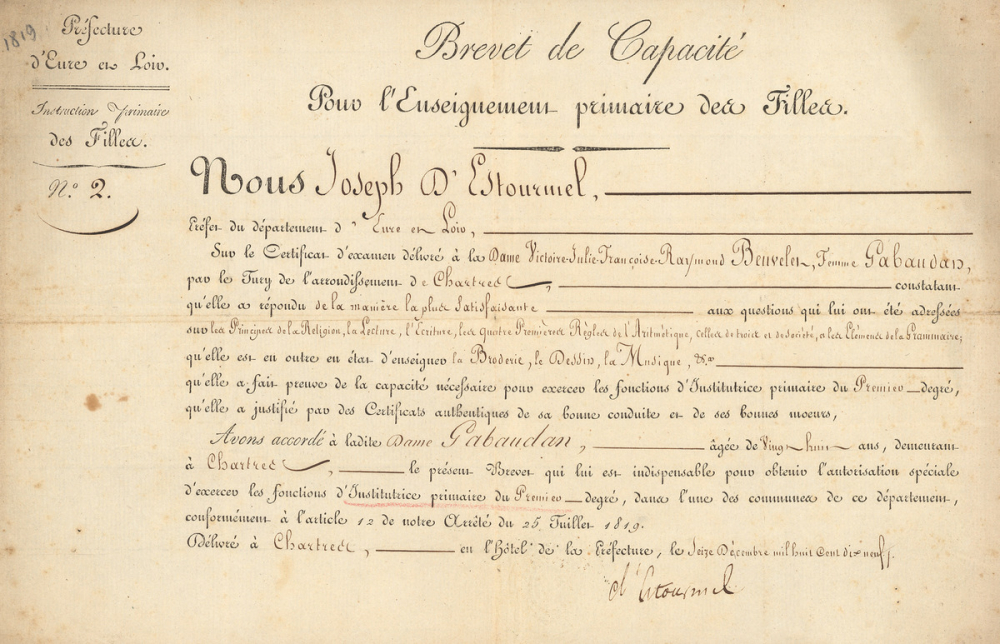 1819
Préfecture
d'Eure et Loir.
Instruction primaire
des Filles.
N.º 2.
Brevet de Capacité
Pour l'Enseignement primaire des Filles.
Nous Joseph D'Estourmel,
Préfet du département d'Eure et Loir,
Sur le Certificat d'examen délivré à la Dame Victoire-Julie-Françoise-Raymond Beuvelet, Femme Gabaudan,
par le Jury de l'arrondissement de Chartres constatant
qu'elle a répondu de la manière la plus Satisfaisante aux questions qui lui ont été adressées
sur les Principes de la Religion, la Lecture, l'Ecriture, les quatre Premières Règles de l'Aritmétique, celles de trois et de société, et les Elémens de la Grammaire;
qu'elle est en outre en état d'enseigner la Broderie, le Dessin, la Musique, &a
qu'elle a fait preuve de la capacité nécessaire pour exercer les fonctions d'Institutrice primaire du Premier degré,
qu'elle a justifié par des Certificats authentiques de sa bonne conduite et de ses bonnes moeurs,
Avons accordé à ladite Dame Gabaudan, âgée de Vingt-huit ans, demeurant
à Chartres le présent Brevet qui lui est indispensable pour obtenir l'autorisation spéciale
d'exercer les fonctions d'Institutrice primaire du Premier degré, dans l'une des communes de ce département,
conformément à l'article 12 de notre Arrêté du 25 Juillet 1819.
Délivré à Chartres, en l'Hôtel de la Préfecture, le Seize Décembre mil huit Cent dix neuf.
d'Estourmel